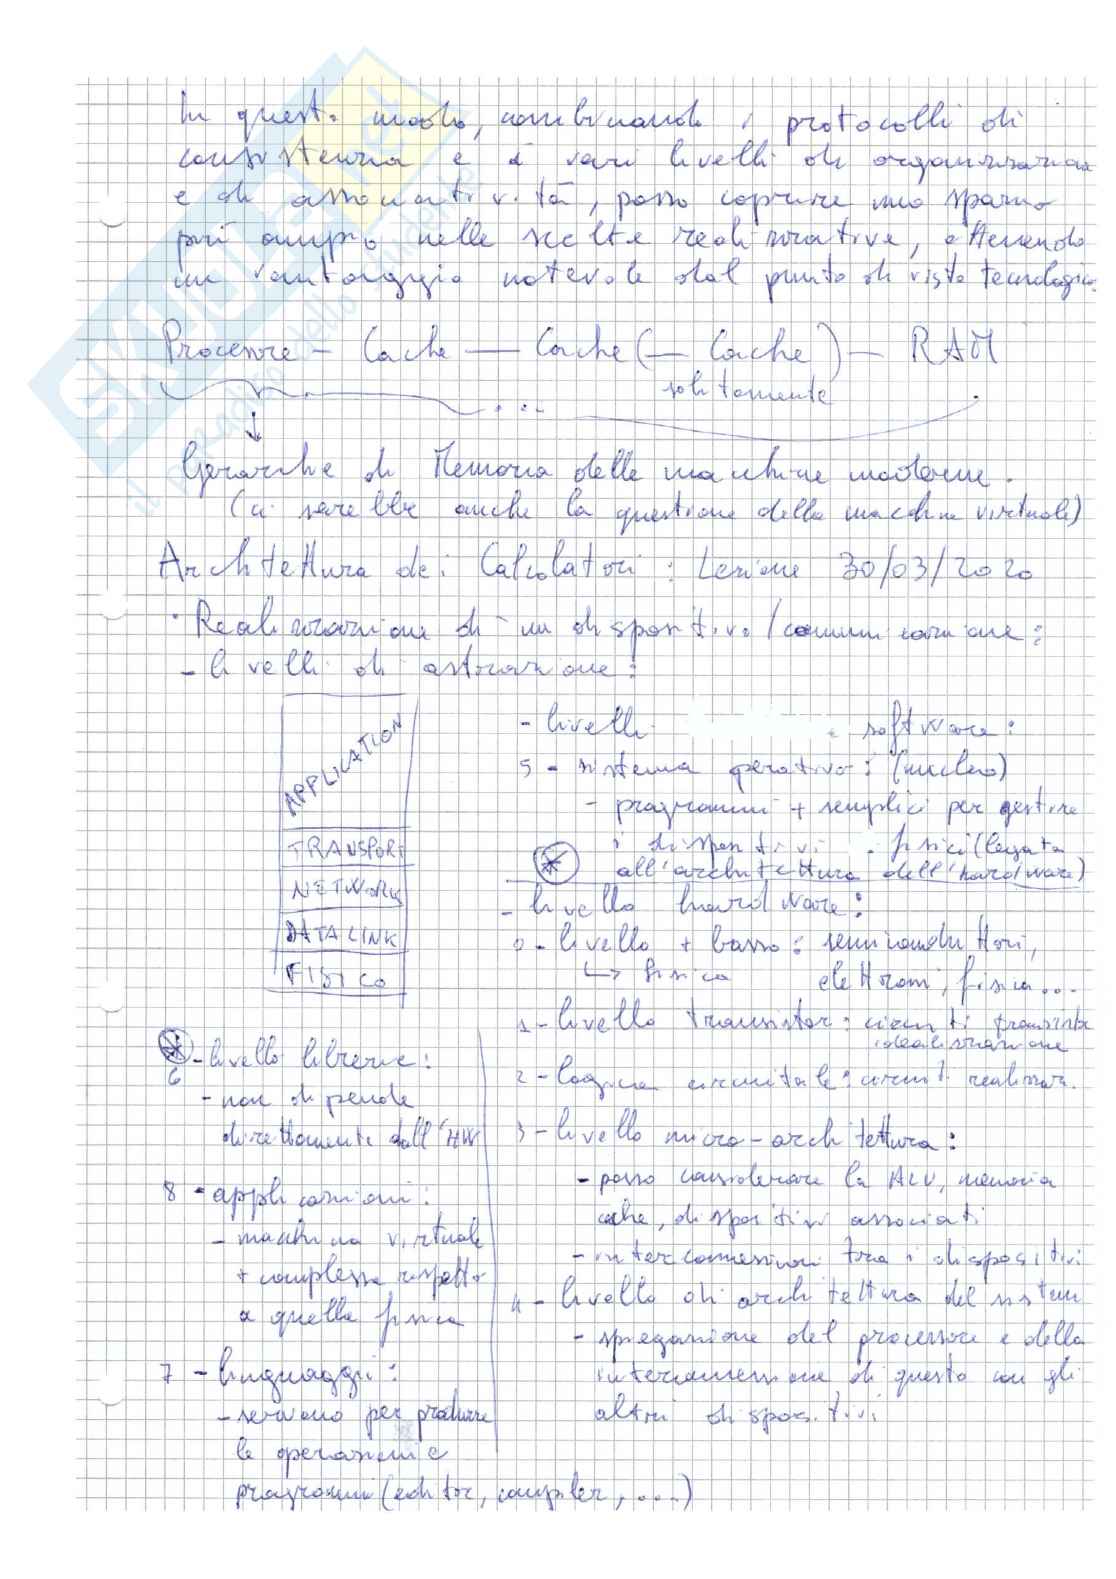 In questo modo, combinando i protocolli di
consistenza e i vari livelli di organizzazione
e di associatività, posso coprire uno spazio
più ampio nelle scelte realizzative, ottenendo
un vantaggio notevole dal punto di vista tecnologico.
Processore - Cache - Cache (- Cache) - RAM
solitamente
...
Gerarchie di Memoria delle macchine moderne.
(ci sarebbe anche la questione della macchina virtuale)
Architettura dei Calcolatori: Lezione 30/03/2020
· Realizzazione di un dispositivo/comunicazione:
- livelli di astrazione:
APPLICATION
TRANSPORT
NETWORK
DATA LINK
FISICO
- livelli software:
5 - sistema operativo: (nucleo)
- programmi + semplici per gestire
i dispositivi fisici (legata
all'architettura dell'hardware)
- livello hardware:
0 - livello + basso: semiconduttori,
↳ fisica elettroni, fisica...
1 - livello transistor: circuiti transistor
idealizzazione
2 - logica circuitale: circuiti realizzaz.
3 - livello micro-architettura:
- posso considerare la ALU, memoria
cache, dispositivi associati
- interconnessioni tra i dispositivi
4 - livello di architettura del sistema
- spiegazione del processore e della
interconnessione di questo con gli
altri dispositivi
6 - livello librerie:
- non dipende
direttamente dall'HW
8 - applicazioni:
- macchina virtuale
+ complessa rispetto
a quella fisica
7 - linguaggi:
- servono per produrre
le operazioni e
programmi (editor, compiler, ....)
SKUOLA.net
il paradiso dello studente